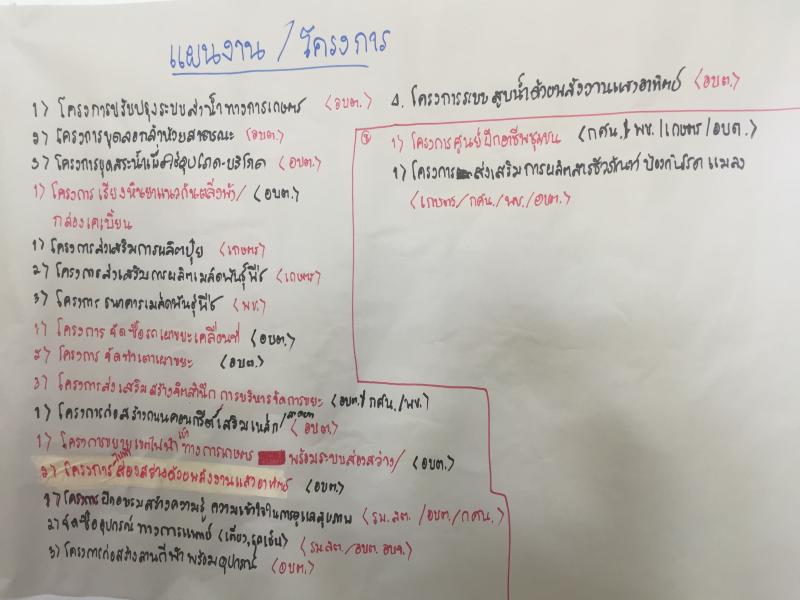 แผนงาน / โครงการ
1) โครงการปรับปรุงระบบส่งน้ำทางการเกษตร (อบต.)
2) โครงการขุดลอกลำห้วยสาธารณะ (อบต.)
3) โครงการขุดสระน้ำเพื่อใช้อุปโภค-บริโภค (อบต.)
1) โครงการเรียงหินยาแนวกันตลิ่งพัง/ (อบต.)
กล่องเกเบี้ยน
1) โครงการส่งเสริมการผลิตปุ๋ย (เกษตร)
2) โครงการส่งเสริมการผลิตเมล็ดพันธุ์พืช (เกษตร)
3) โครงการ ธนาคารเมล็ดพันธุ์พืช (พช.)
1) โครงการ จัดซื้อรถเผาขยะเคลื่อนที่ (อบต.)
2) โครงการ จัดทำเตาเผาขยะ (อบต.)
3) โครงการส่งเสริมสร้างจิตสำนึก การบริหารจัดการขยะ (อบต./กศน./พช.)
1) โครงการก่อสร้างถนนคอนกรีตเสริมเหล็ก/ (อบต.)
1) โครงการขยายเขตไฟฟ้าทางการเกษตร พร้อมระบบส่องสว่าง/ (อบต.)
2) โครงการไฟฟ้าส่องสว่างด้วยพลังงานแสงอาทิตย์ (อบต.)
1) โครงการฝึกอบรมสร้างความรู้ ความเข้าใจในการดูแลสุขภาพ (รพ.สต. /อบต./กศน.)
2) จัดซื้ออุปกรณ์ทางการแพทย์ (เตียง,รถเข็น) (รพ.สต./อบต. อบจ.)
3) โครงการก่อสร้างลานกีฬาพร้อมอุปกรณ์ (อบต.)
4. โครงการระบบสูบน้ำด้วยพลังงานแสงอาทิตย์ (อบต.)
1) โครงการศูนย์ฝึกอาชีพชุมชน (กศน./พช./เกษตร/อบต.)
1) โครงการส่งเสริมการผลิตสารชีวภัณฑ์ ป้องกันโรค แมลง
(เกษตร/กศน./พช./อบต.)